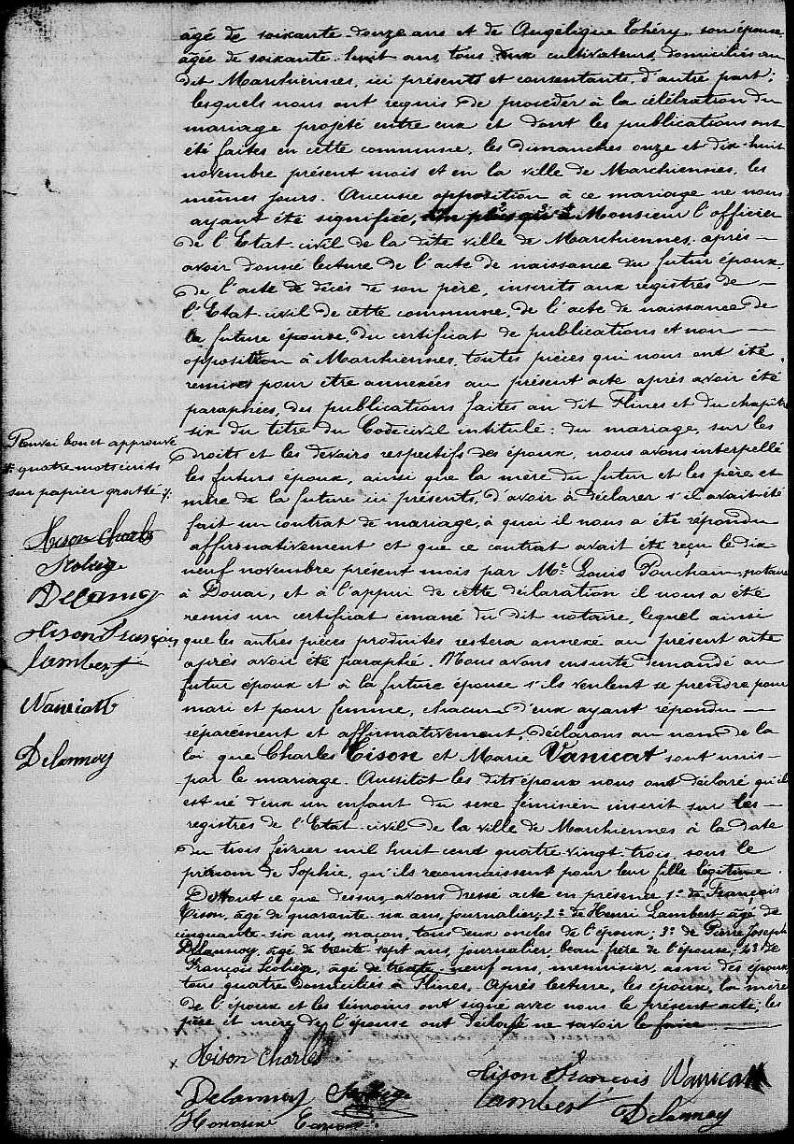 âgé de soixante-douze ans et de Angélique Théry, son épouse,
âgée de soixante-huit ans, tous deux cultivateurs, domiciliés au
dit Marchiennes, ici présents et consentants, d'autre part;
lesquels nous ont requis de procéder à la célébration du
mariage projeté entre eux et dont les publications ont
été faites en cette commune, les dimanches onze et dix-huit
novembre présent mois et en la ville de Marchiennes, les
mêmes jours. Aucune opposition à ce mariage ne nous
ayant été signifiée, Monsieur l'officier
de l'Etat-civil de la dite ville de Marchiennes, après
avoir donné lecture de l'acte de naissance du futur époux,
de l'acte de décès de son père, inscrits aux registres de
l'Etat-civil de cette commune, de l'acte de naissance de
la future épouse, du certificat de publications et non
opposition à Marchiennes, toutes pièces qui nous ont été
remises pour être annexées au présent acte après avoir été
paraphées, des publications faites au dit Flines et du chapitre
six du titre du Code civil intitulé: du mariage, sur les
droits et les devoirs respectifs des époux, nous avons interpellé
les futurs époux, ainsi que la mère du futur et les père et
mère de la future ici présents, d'avoir à déclarer s'il avait été
fait un contrat de mariage, à quoi il nous a été répondu
affirmativement et que ce contrat avait été reçu le dix
neuf novembre présent mois par Me Louis Ponchain, notaire
à Douai, et à l'appui de cette déclaration il nous a été
remis un certificat émané du dit notaire, lequel ainsi
que les autres pièces produites restera annexé au présent acte
après avoir été paraphé. Nous avons ensuite demandé au
futur époux et à la future épouse s'ils veulent se prendre pour
mari et pour femme, chacun d'eux ayant répondu
séparément et affirmativement, déclarons au nom de la
loi que Charles Tison et Marie Vanicat sont unis
par le mariage. Aussitôt les dits époux nous ont déclaré qu'il
est né d'eux un enfant du sexe féminin inscrit sur les
registres de l'Etat-civil de la ville de Marchiennes à la date
du trois février mil huit cent quatre-vingt-trois, sous le
prénom de Sophie, qu'ils reconnaissent pour leur fille légitime.
De tout ce que dessus, avons dressé acte en présence 1° de François
Tison, âgé de quarante-six ans, journalier; 2° de Henri Lambert âgé de
cinquante-six ans, maçon, tous deux oncles de l'époux; 3° de Pierre Joseph
Delannoy, âgé de trente-sept ans, journalier, beau-frère de l'épouse; 4° de
François Scohez, âgé de trente-neuf ans, menuisier, ami des époux
tous quatre domiciliés à Flines. Après lecture, les époux, la mère
de l'époux et les témoins ont signé avec nous le présent acte; les
père et mère de l'épouse ont déclaré ne savoir le faire
Renvoi bon et approuvé
quatre mots écrits
sur papier gratté
Tison Charles
Delannoy
Tison François
Lambert
Wanicatt
Delannoy
Tison Charles
Tison François Wanicatt
Delannoy
Lambert Delannoy